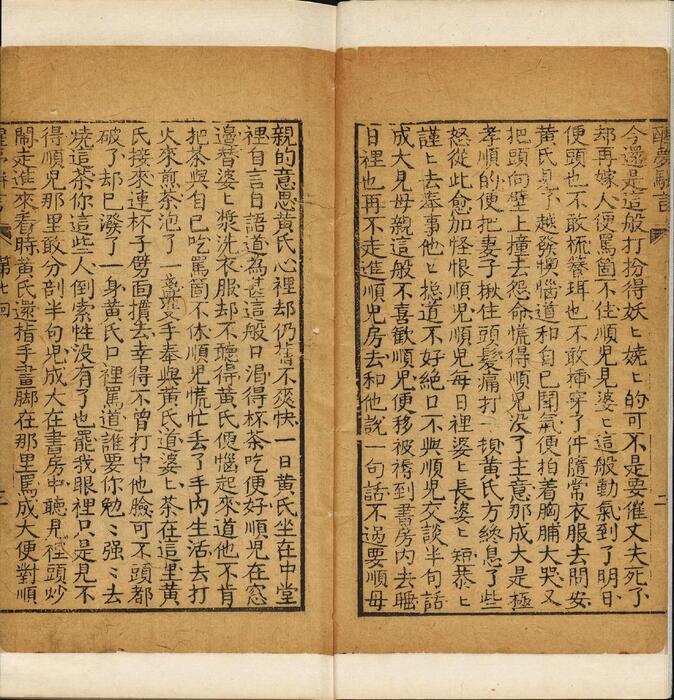 醒夢駢言
今還是這般打扮得妖〻嬈〻的可不是要催丈夫死了
却再嫁人便罵箇不住順兒見婆〻這般動氣到了明日
便頭也不敢梳簪珥也不敢插穿了件隨常衣服去問安
黄氏見了越發懊惱道和自己鬬氣便拍着胸脯大哭又
把頭向壁上撞去怨命慌得順兒没了主意那成大是極
孝順的便把妻子楸住頭髮痛打一頓黄氏方終息了些
怒從此愈加怪恨順兒順兒每日裡婆〻長婆〻短恭〻
謹〻去奉事他〻揔道不好絶口不與順兒交談半句話
成大見母親這般不喜歡順兒便移被褥到書房内去睡
日裡也再不走進順兒房去和他說一句話不過要順母
二
親的意思黄氏心裡却仍舊不爽快一日黄氏坐在中堂
裡自言自語道為甚這般口渴得杯茶吃便好順兒在窓
邊替婆〻漿洗衣服却不聽得黄氏便惱起來道他不肯
把茶與自己吃罵箇不休順兒慌忙丢了手内生活去打
火來煎茶泡了一盞雙手奉與黄氏道婆〻茶在這里黄
氏接來連杯子劈面摜去幸得不曾打中他臉可不頭都
破了却已潑了一身黄氏口裡罵道誰要你勉〻强〻去
燒這茶你這些人倒索性没有了也罷我眼裡只是見不
得順兒那里敢分剖半句兒成大在書房中聽見裡頭炒
鬧走進來看時黄氏還指手畫脚在那里罵成大便對順
醒夢駢言
第七回
三